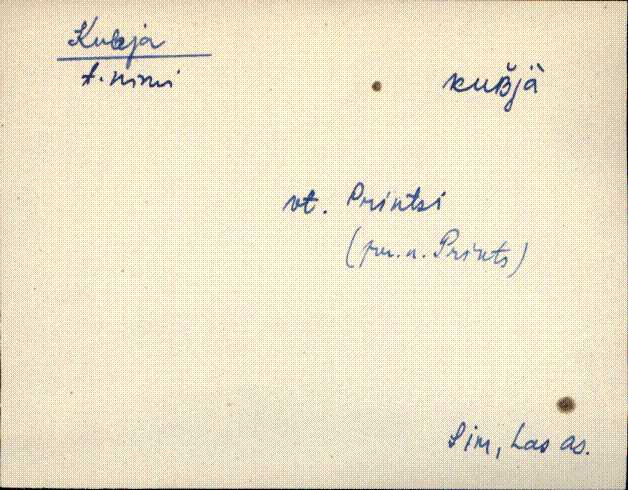 Kubja
t. nimi
kuʙ̌jȧ̀
vt. Printsi
(per. n. Prints)
Sim, Las as.